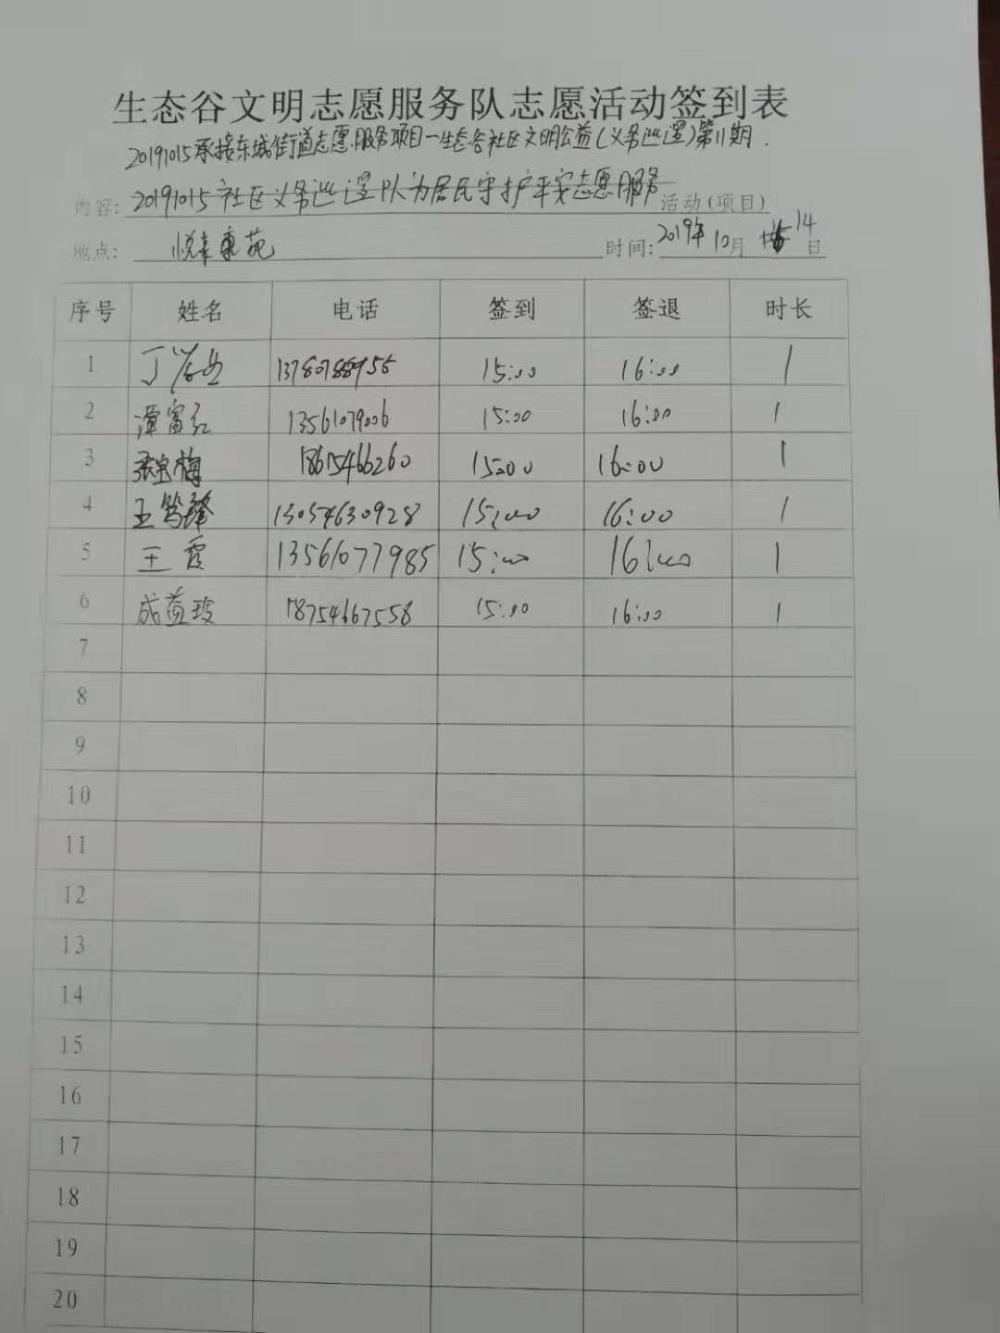 生态谷文明志愿服务队志愿活动签到表
20191015承接东城街道志愿服务项目—生态谷社区文明公益(义务巡逻)第11期.
内容: 20191015社区义务巡逻队为居民守护平安志愿服务 活动(项目)
地点: 悦来 苑 时间: 2019年10月14日
序号 姓名 电话 签到 签退 时长
1 丁 13780788955 15:00 16:00 1
2 谭富红 13561079006 15:00 16:00 1
3 张宝梅 18615466260 15:00 16:00 1
4 王笃 13054630928 15:00 16:00 1
5 王霞 13561077985 15:00 16:00 1
6 成益玲 18754667558 15:00 16:00 1
7
8
9
10
11
12
13
14
15
16
17
18
19
20